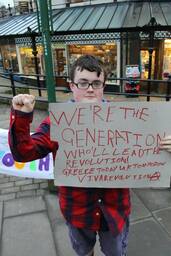 WE'RE THE
GENERATION
WHO'LL LEAD THE
REVOLUTION!
GREECE TODAY UK TOMORROW
VIVA REVOLUTION